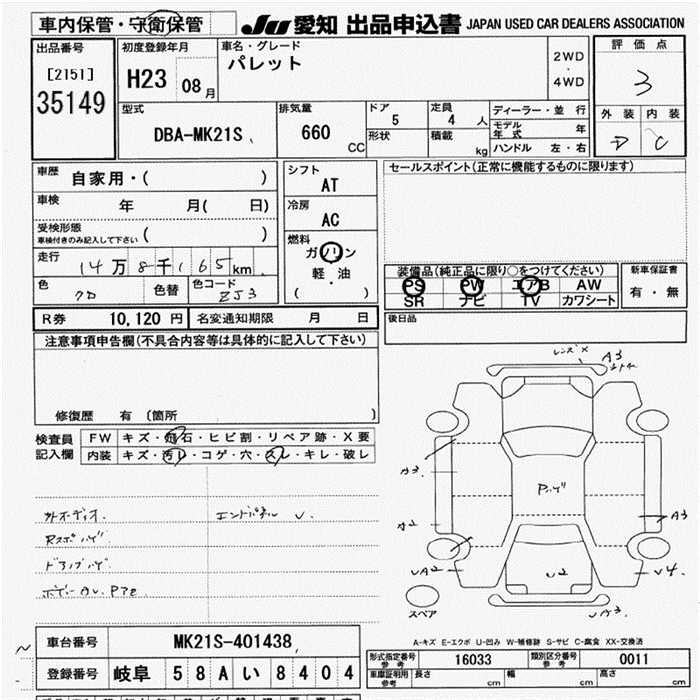 車内保管・守衛保管
JU 愛知 出品申込書 JAPAN USED CAR DEALERS ASSOCIATION
出品番号
[2151]
35149
初度登録年月
H23 08月
車名・グレード
パレット
2WD
・
4WD
評価点
3
外装 内装
D C
型式
DBA-MK21S
排気量
660
CC
ドア
5
形状
定員
4 人
積載
kg
ディーラー・並行
モデル年式 年
ハンドル 左・右
車歴
自家用・( )
車検
年 月( 日)
受検形態
車検付きのみ記入して下さい ( )
走行
14万8千165km
色
色替
色コード
ZJ3
シフト
AT
冷房
AC
燃料
ガソリン
軽・油
( )
セールスポイント(正常に機能するものに限ります)
装備品(純正品に限り○をつけてください)
PS PW エアB AW
SR ナビ TV カワシート
新車保証書
有・無
R券 10,120 円 名変通知期限 月 日
後日品
注意事項申告欄(不具合内容等は具体的に記入して下さい)
修復歴 有 (箇所 )
検査員
記入欄
FW キズ・飛石・ヒビ割・リペア跡・X要
内装 キズ・汚レ・コゲ・穴・スレ・キレ・破レ
外オーディオ.
エンドパネル U.
Rスポ
ボデーAU. P72
レンズX A3
A3
A2
UA2
U2
A3
U4
UA3
スペア
A-キズ E-エクボ U-凹み W-補修跡 S-サビ C-腐食 XX-交換済
車台番号 MK21S-401438
登録番号 岐阜 58A い 8404
形式指定番号
参考
16033
類別区分番号
参考
0011
車庫証明用
参考
長さ cm 幅 cm 高さ cm